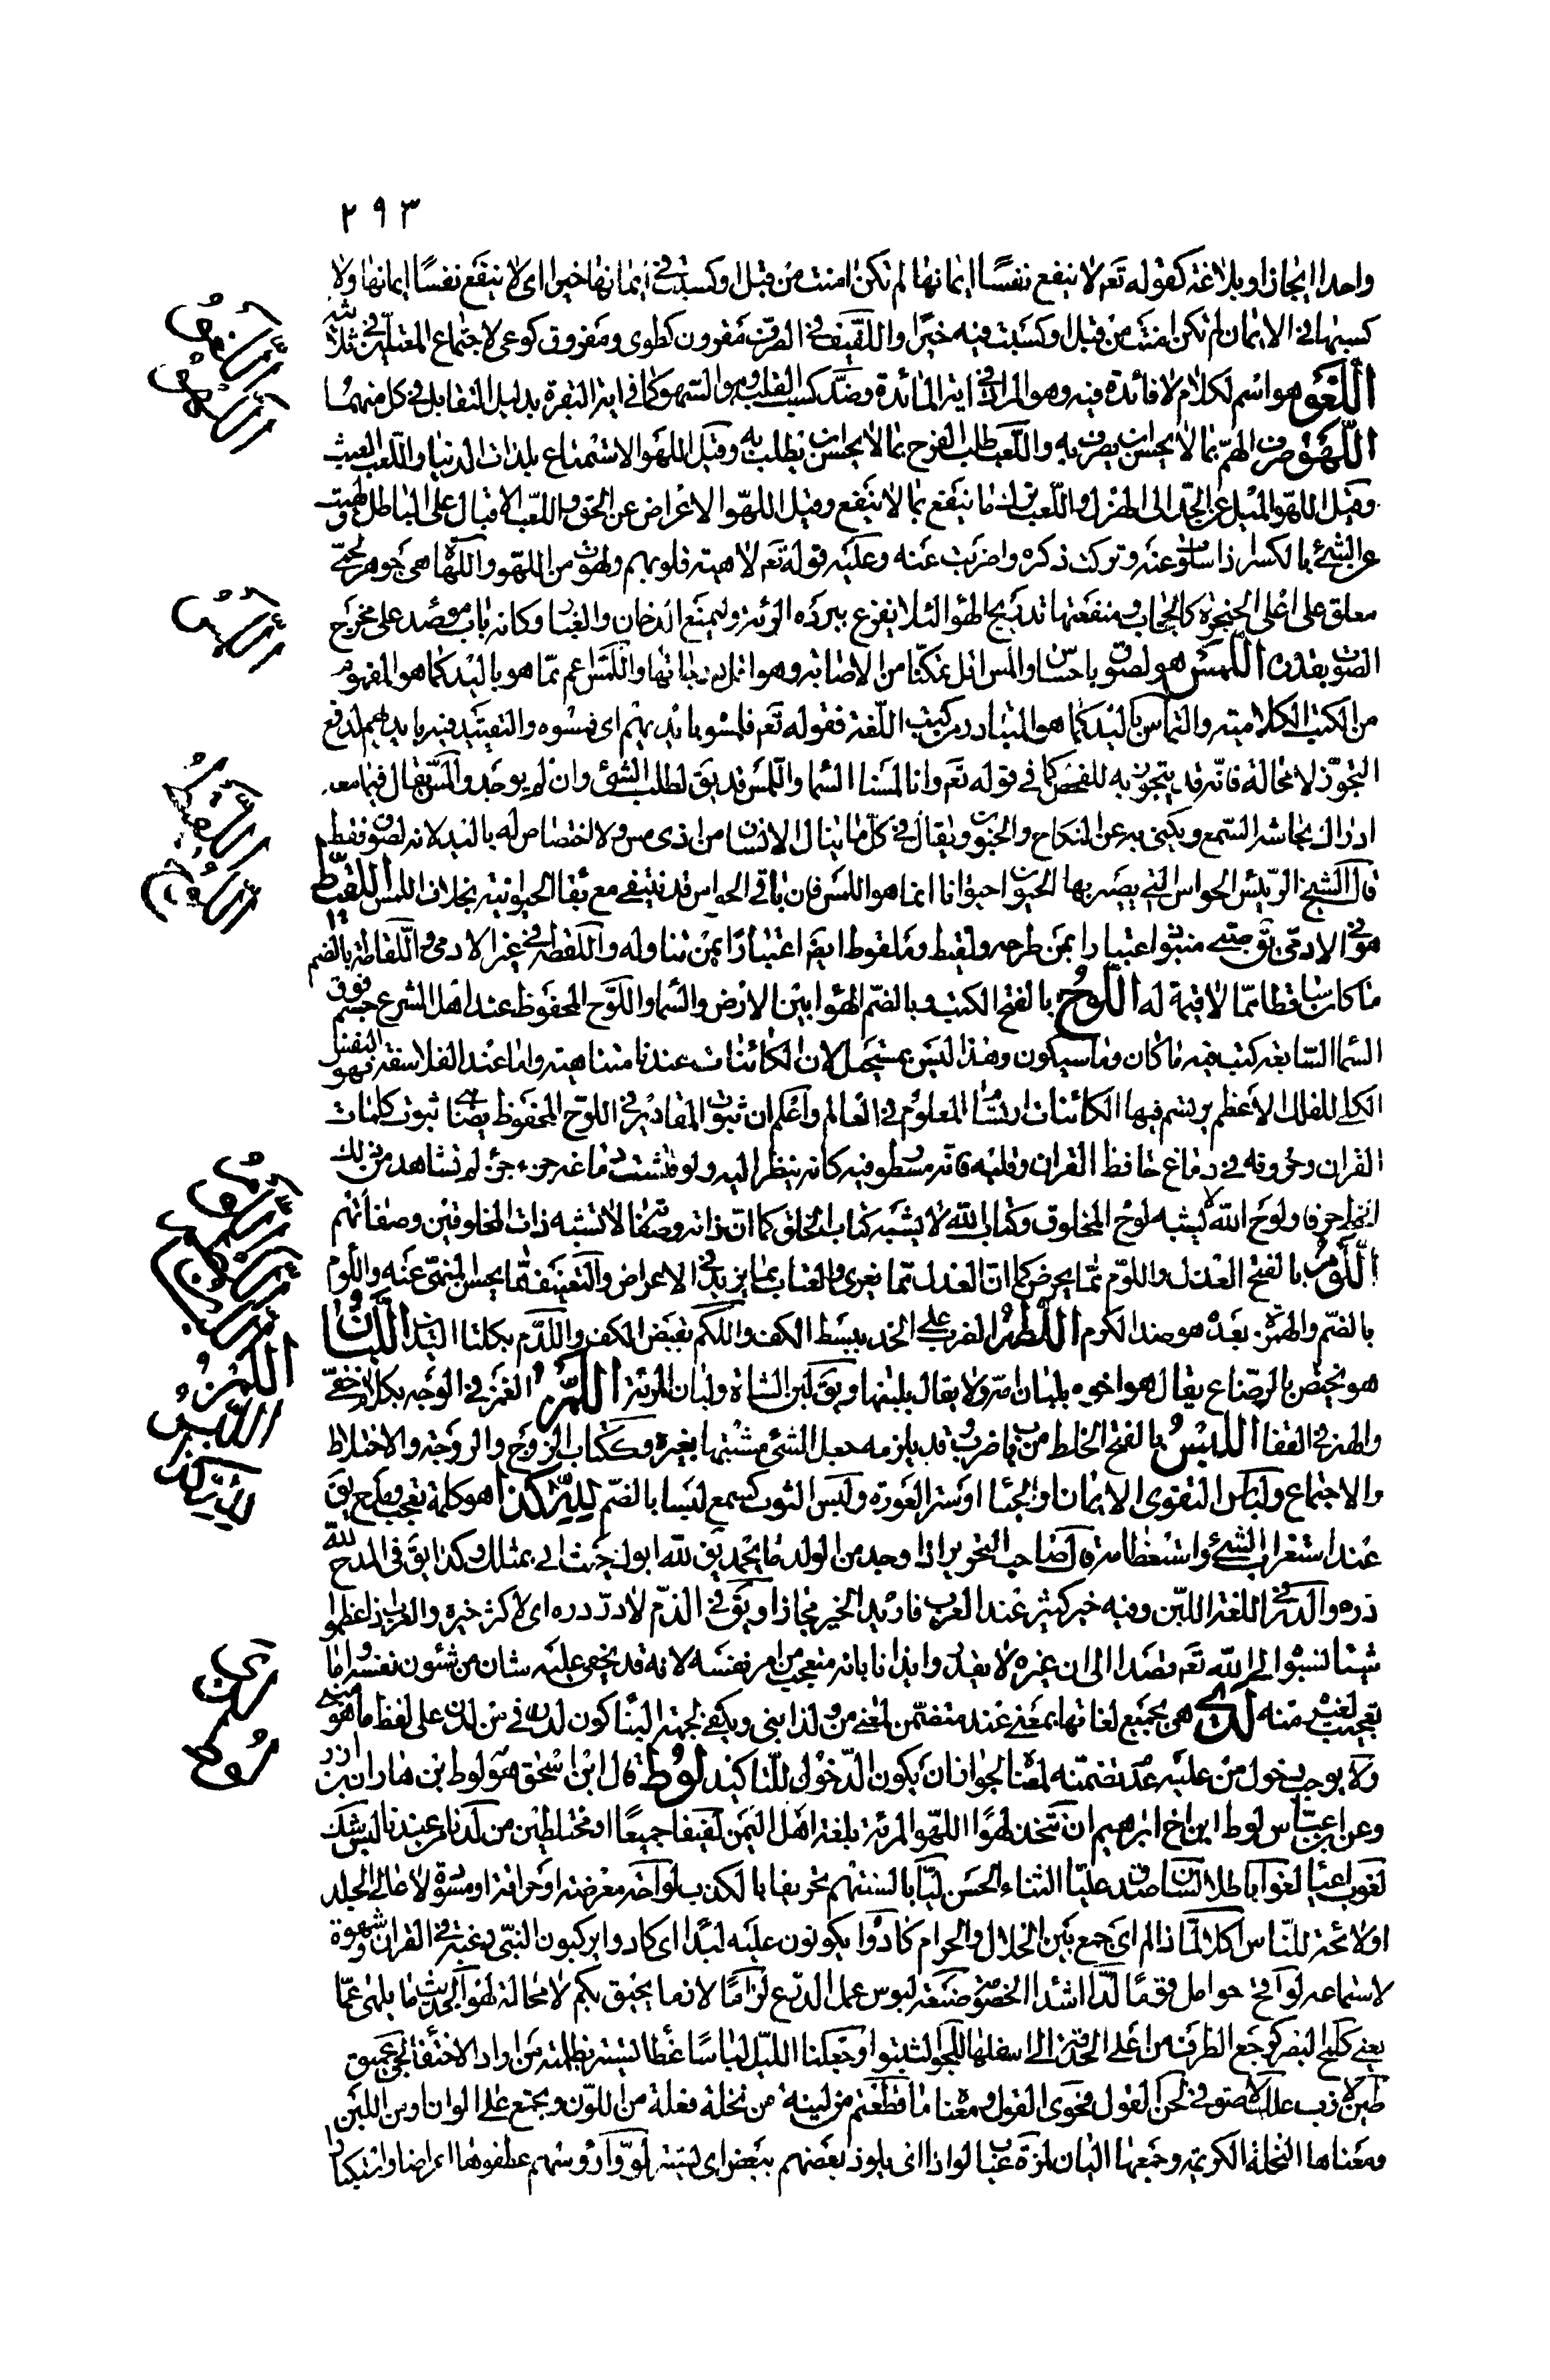 ٢٩٣
واحدا ايجازا وبلاغة كقوله تعم لا ينفع نفسًا ايمانها لم تكن امنت من قبل او كسبت في ايمانها خيرا اى لا ينفع نفسًا ايمانها ولا
كسبها في الايمان لم تكن امنت من قبل او كسبت فيه خيرًا واللفيف في الصرف مقرون كطوى ومفروق كوعى لاجتماع المعتلين في ثلاثيه
اللغو هو اسم لكلام لا فائدة فيه وهو المراد في اية المائدة وضد كسب القلب وهو السهو كما في اية البقرة بدليل التقابل في كل منهما
اللهو صرف الهم بما لا يحسن ان يصرف به واللعب طلب الفرح بما لا يحسن ان يطلب به وقيل اللهو الاستمتاع بلذات الدنيا واللعب العبث
وقيل اللهو الميل عن الجد الى الهزل واللعب ترك ما ينفع بما لا ينفع وقيل اللهو الاعراض عن الحق واللعب الاقبال على الباطل ولهيت
عن الشئ بالكسر اذا سلوت عنه وتركت ذكره واضربت عنه وعليه قوله تعم لاهية قلوبهم ولهوت من اللهو واللهاة هى جوهر لحمى
معلق على اعلى الحنجرة كالحجاب ومنفعتها تدريج الهواء لئلا يقرع ببرده الرئة وليمنع الدخان والغبار وكانه باب موصد على مخرج
الصوت بقدره اللمس هو لصوق باحساس والمس اقل تمكنا من الاصابة وهو اقل درجاتها واللمس اعم مما هو باليد كما هو المفهوم
من الكتب الكلامية والتماس باليد كما هو المتبادر من كتب اللغة فقوله تعم فلمسوه بايديهم اى فمسوه والتقييد فيه بايديهم لدفع
التجوز لا محالة فانه قد يتجوز به للفحص كما في قوله تعم وانا لمسنا السماء واللمس قد يق لطلب الشئ وان لم يوجد والمس يقال فيما معه
ادراك بحاسة السمع ويكنى به عن النكاح والجنون ويقال في كل ما ينال الانسان من اذى مس ولا اختصاص له باليد لانه لصوق فقط
قال الشيخ الرئيس الحواس التى يصير بها الحيوان حيوانا انما هو اللمس فان باقى الحواس قد ينتفى مع بقاء الحيوانية بخلاف اللمس اللقيط
هو في الادمى يق صبى منبوذ اعتبارا بمن طرحه ولقيط وملقوط ايضا اعتبارًا بمن تناوله واللقطة في غير الادمى واللقاطة بالضم
ما كان ساقطا مما لا قيمة له اللوح بالفتح الكتب وبالضم الهواء بين الارض والسماء واللوح المحفوظ عند اهل الشرع جسم فوق
السماء السابعة كتب فيه ما كان وما سيكون وهذا ليس بمستحيل لان الكائنات عندنا متناهية واما عند الفلاسفة فهو النفس
الكلى للفلك الاعظم يرتسم فيها الكائنات ارتسام المعلوم في العالم واعلم ان ثبوت المقادير في اللوح المحفوظ يضاهى ثبوت كلمات
القران وحروفه في دماغ حافظ القران وقلبه فانه مسطور فيه كانه ينظر اليه ولو فتشت دماغه جزء جزء لم تشاهد من ذلك
الخط حرفا ولوح الله لا يشبه لوح المخلوق وكتاب الله لا يشبه كتاب الخلق كما ان ذاته وصفاته لا تشبه ذات المخلوقين وصفاتهم
اللوم بالفتح العذل واللوم مما يحرض كما ان العذل مما يغرى والعتاب مما يزيد في الاعراض والتعنيف مما يحسن المنهى عنه واللوم
بالضم والهمزة بعده هو ضد الكرم اللطم الضرب على الخد ببسط الكف واللكم بقبض الكف واللدم بكلتا اليدين اللبان
هو يختص بالرضاع يقال هو اخوه بلبان امه ولا يقال بلبنها ويق لبن الشاة ولبان المرءة اللمز الغمز في الوجه بكلام خفى
والهمز في القفا اللبس بالفتح الخلط من باب ضرب قد يلزمه جعل الشئ مشتبها بغيره وككتاب الزوج والزوجة والاختلاط
والاجتماع ولباس التقوى الايمان او الحياء او ستر العورة ولبس الثوب كسمع لبسا بالضم لله كذا هو كلمة تعجب ومدح يق
عند استغراب الشئ واستعظامه قال صاحب التحرير اذا وجد من الولد ما يحمد يق لله ابوك حيث اتى بمثلك وكذا يق في المدح لله
دره والدر في اللغة اللبن وفيه خير كثير عند العرب فاريد الخير مجازا ويق في الذم لا در دره اى لا كثر خيره والعرب اذا عظموا
شيئا نسبوه الى الله تعم قصدا الى ان غيره لا يقدر وايذانا بانه متعجب من امر نفسه لانه قد يخفى عليه شان من شئون نفسه واما
تعجب لغيره منه لدى هى بجميع لغاتها بمعنى عند متضمن لمعنى من ولذا بنى ويكفى لجهة البناء كون لدن في من لدن على لفظ ما هو مبنى
ولا يوجب دخول من عليه عدم تضمنه لمعناه لجواز ان يكون الدخول للتاكيد لوط قال ابن اسحق هو لوط بن هاران بن ازر
وعن ابن عباس لوط ابن اخ ابرهيم ان نتخذ لهوًا اللهو المرئة بلغة اهل اليمن لفيفا جميعًا او مختلطين من لدنا من عندنا لبس شك
لغوب اعياء لغوا باطلا لسان صدق عليا الثناء الحسن ليًا بالسنتهم تحريفا بالكذب لواحة مغرضة او حراقة او مسودة لاعالى الجلد
او لائحة للناس اكلا لما ذا لم اى جمع بين الحلال والحرام كادوا يكونون عليه لبدًا اى كادوا يركبون النبى رغبة في القران وشهوة
لاستماعه لواقح حوامل وقومًا لدًا اشداء الخصومة صنعة لبوس عمل الدرع لزامًا لازما يحيق بكم لا محالة لهو الحديث ما يلهى عما
يعنى كلمح البصر كرجع الطرف من اعلى الحدقة الى اسفلها للجوا لثبتوا وجعلنا الليل لباسًا غطاء يستتر بظلمته من اراد الاختفاء لجى عميق
طين لازب علك لاصق في لحن القول فحوى القول ومعناه ما قطعتم من لينة من نخلة فعلة من اللون ويجمع على الوان او من اللين
ومعناها النخلة الكريمة وجمعها اليان لمزة عياب لواذا اى يلوذ بعضهم ببعض اى يستتر لووا رؤسهم عطفوها اعراضا واستكبارا
اللغو
اللهو
اللمس
اللقيط
اللوح
اللوم
اللطم
اللبان
اللمز
اللبس
لله كذا
لدى
لوط